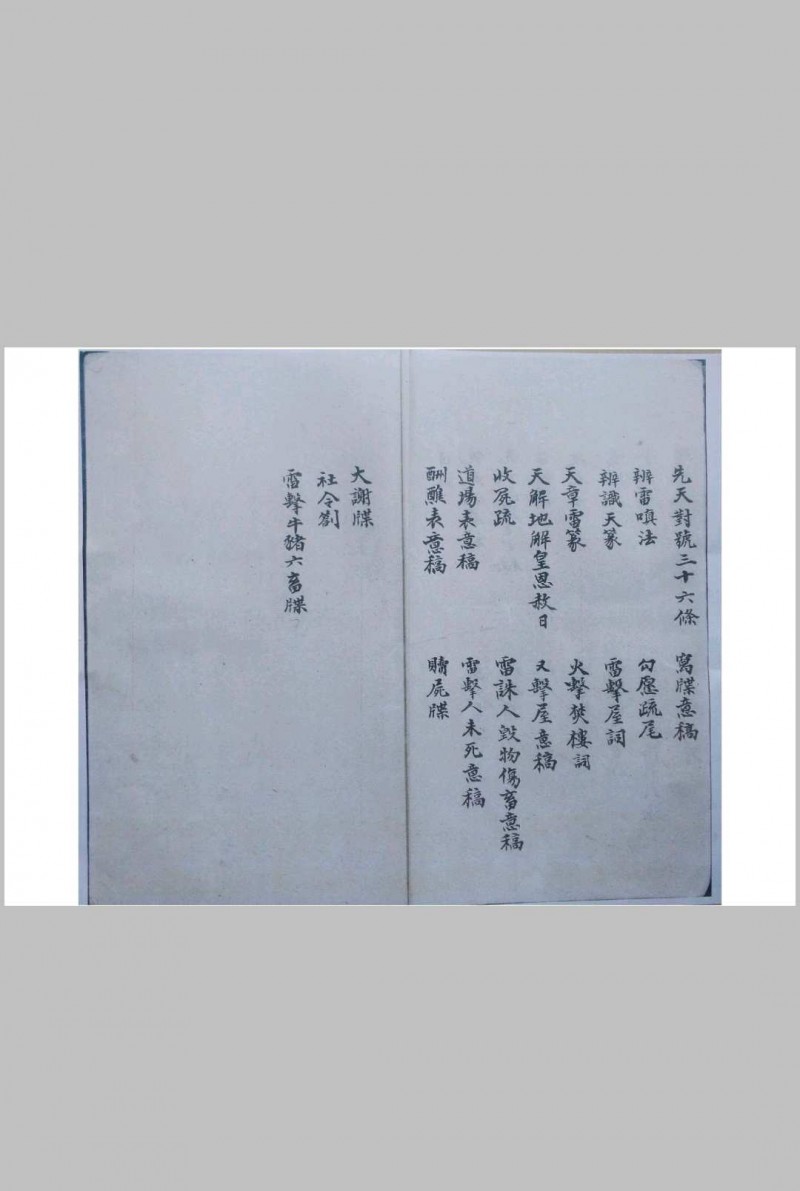 先天對號三十六條
辨雷嗔法
辨識天篆
天章雷篆
天解地解皇恩赦日
收屍疏
道場表意稿
酬醮表意稿
寫牒意稿
勾愿疏尾
雷擊屋詞
火擊焚樓詞
又擊屋意稿
雷誅人毀物傷畜意稿
雷擊人未死意稿
贖屍牒
大謝牒
社令劄
雷擊牛豬六畜牒